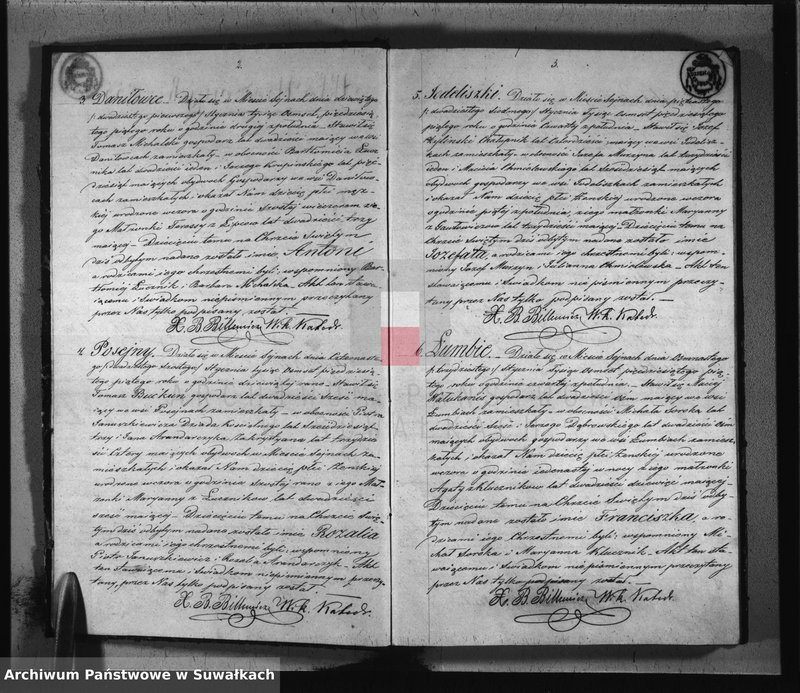 2.
3. Daniłowce. Działo się w Mieście Sejnach dnia dziewiątego
/: dwudziestego pierwszego :/ Stycznia tysiąc Ośmset pięćdziesią-
tego piątego roku o godzinie drugiej z południa. Stawił się
Tomasz Michalski gospodarz lat dwadzieścia mający we wsi
Daniłowcach zamieszkały w obecności Bartłomieja Łucz-
nika lat dwadzieścia jeden i Jerzego lat pię-
dziesiąt mających obydwóch Gospodarzy we wsi Daniłow-
cach zamieszkałych i okazał Nam dziecię płci męz-
kiej urodzone wczora o godzinie szóstej wieczorem z je-
go Małżonki lat dwadzieścia trzy
mającej. Dziecięciu temu na Chrzcie Świętym
dziś odbytym nadane zostało imie Antoni
a rodzicami jego chrzestnemi byli: wspomniony Bar-
tłomiej Łucznik i Barbara Michalska. Akt ten stawa-
jącemu i Świadkom niepiśmiennym przeczytany
przez Nas tylko podpisany został.
X. B. Billewicz W. K. Katedr.
4. Posejny. Działo się w Mieście Sejnach dnia Czternaste-
go /: dwudziestego szóstego :/ Stycznia tysiąc Ośmset pięćdziesią-
tego piątego roku o godzinie dziewiątej rano. Stawił się
Tomasz gospodarz lat dwadzieścia sześć mają-
cy we wsi Posejnach zamieszkały w obecności Piotra
Januszkiewicza Dziada Kościelnego lat sześćdziesiąt
trzy i Jana Arendarczyka Zakrystyana lat trzydzie-
ści Cztery mających obydwóch w Mieście Sejnach za-
mieszkałych i okazał Nam dziecię płci Żeńskiej
urodzone wczora o godzinie szóstej rano z jego Mał-
żonki Maryanny z Łuczników lat dwadzieścia
sześć mającej. Dziecięciu temu na Chrzcie Świę-
tym dziś odbytym nadane zostało imie Rozalia
a rodzicami jego chrzestnemi byli: wspomniony
Piotr Januszkiewicz i Rozalia Arendarczyk. Akt
ten Stawającemu i Świadkom niepiśmiennym przeczy-
tany, przez Nas tylko podpisany został.
X. B. Billewicz W. K. Katedr.
3.
5. Jodeliszki. Działo się w Mieście Sejnach dnia piętnastego
/: dwudziestego siódmego :/ Stycznia tysiąc Ośmset pięćdziesiątego
piątego roku o godzinie czwartej z południa. Stawił się Józef
Chałupnik lat czterdzieści mający we wsi Jodelisz-
kach zamieszkały w obecności Józefa Murzyna lat trzydzieści
jeden i Macieja Chmielewskiego lat mających
obydwóch gospodarzy we wsi Jodeliszkach zamieszkałych
i okazał Nam dziecię płci Żenskiej urodzone wczora
o godzinie piątej z południa, z jego małżonki Maryanny
lat trzydzieści mającej. Dziecięciu temu na
Chrzcie Świętym dziś odbytym nadane zostało imie
Jozefata, a rodzicami jego chrzestnemi byli: wspom-
niony Józef Murzyn i Julianna Chmielewska. Akt ten
stawającemu i Świadkom niepiśmiennym przeczy-
tany, przez Nas tylko podpisany został.
X. B. Billewicz W. K. Katedr.
6. Łumbie. Działo się w Mieście Sejnach dnia Osmnastego
/: trzydziestego :/ Stycznia tysiąc Ośmset pięćdziesiątego pią-
tego roku o godzinie czwartej z południa. Stawił się Maciej
gospodarz lat dwadzieścia ośm mający we wsi
Łumbiach zamieszkały w obecności Michała Soroka lat
dwadzieścia sześć i Jerzego Dąbrowskiego lat dwadzieścia ośm
mających obydwóch gospodarzy we wsi Łumbiach zamiesz-
kałych i okazał Nam dziecię płci Żenskiej urodzone
wczora o godzinie jedenastej w nocy z jego małżonki
Agaty z Kluczników lat dwadzieścia dziewięć mającej.
Dziecięciu temu na Chrzcie Świętym dziś odby-
tym nadane zostało imie Franciszka, a ro-
dzicami jego Chrzestnemi byli: wspomniony Mi-
chał Soroka i Maryanna Klucznik. Akt ten sta-
wającemu i Świadkom niepiśmiennym przeczytany
przez Nas tylko podpisany został.
X. B. Billewicz W. K. Katedr.
Archiwum Państwowe w Suwałkach